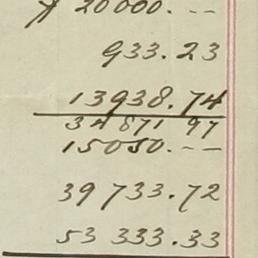 20000. --
933.23
13938.74
34871 97
15050. --
39733.72
53 333.33